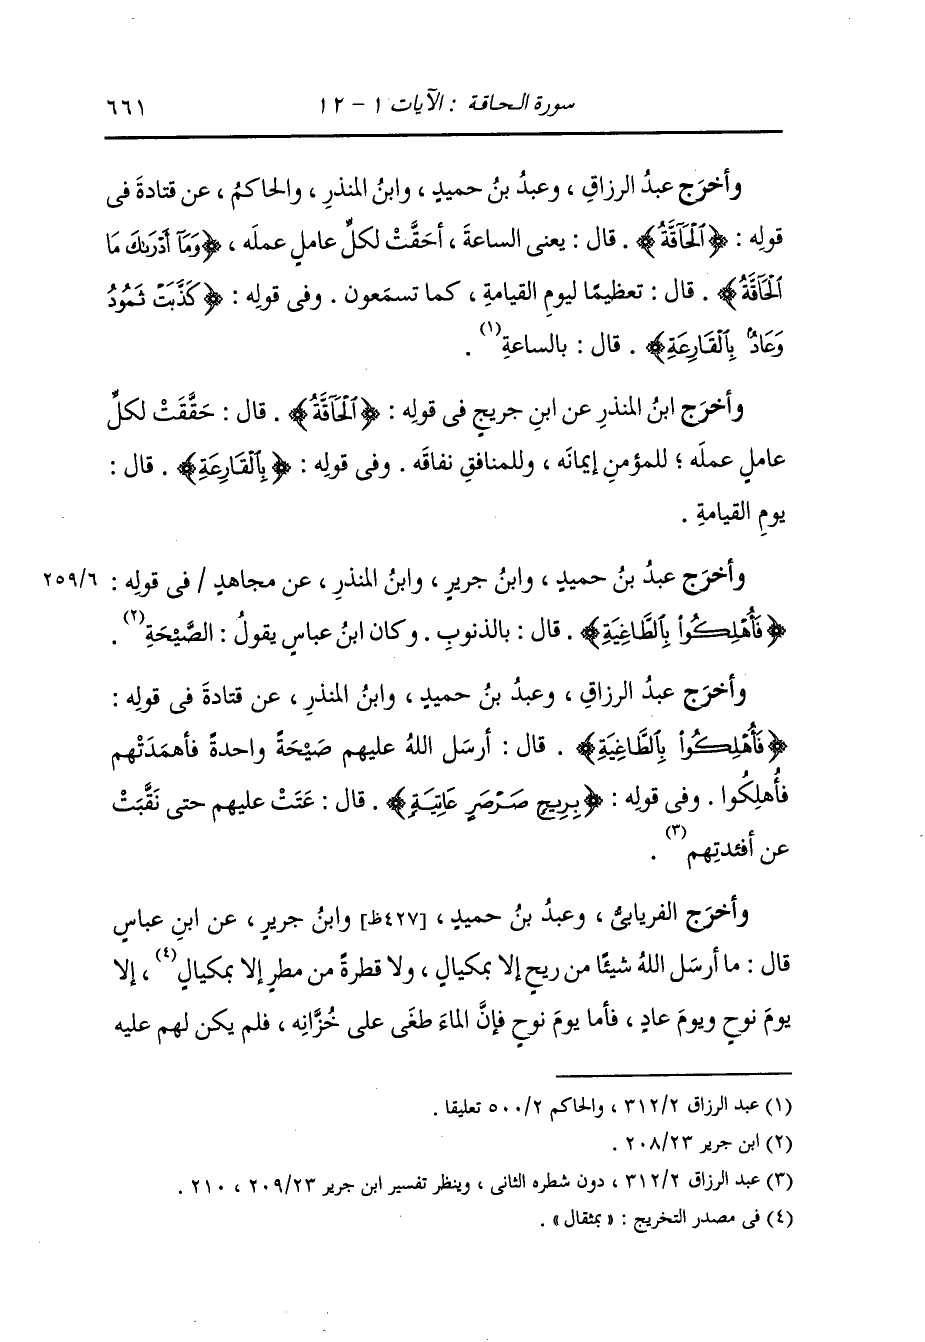 سورة الحاقة : الآيات ١ - ١٢ ٦٦١
وأخرَج عبدُ الرزاقِ ، وعبدُ بنُ حميدٍ ، وابنُ المنذرِ ، والحاكمُ ، عن قتادةَ فى
قولِه : ﴿ٱلْحَآقَّةُ﴾ . قال : يعنى الساعةَ ، أحَقَّتْ لكلِّ عاملٍ عملَه ، ﴿وَمَآ أَدْرَىٰكَ مَا
ٱلْحَآقَّةُ﴾ . قال : تعظيمًا ليومِ القيامةِ ، كما تسمَعون . وفى قولِه : ﴿كَذَّبَتْ ثَمُودُ
وَعَادٌۢ بِٱلْقَارِعَةِ﴾ . قال : بالساعةِ(١) .
وأخرَج ابنُ المنذرِ عن ابنِ جريجٍ فى قولِه : ﴿ٱلْحَآقَّةُ﴾ . قال : حَقَّقَتْ لكلِّ
عاملٍ عملَه ؛ للمؤمنِ إيمانَه ، وللمنافقِ نفاقَه . وفى قولِه : ﴿بِٱلْقَارِعَةِ﴾ . قال :
يومِ القيامةِ .
وأخرَج عبدُ بنُ حميدٍ ، وابنُ جريرٍ ، وابنُ المنذرِ ، عن مجاهدٍ / فى قولِه : ٢٥٩/٦
﴿فَأُهْلِكُوا۟ بِٱلطَّاغِيَةِ﴾ . قال : بالذنوبِ . وكان ابنُ عباسٍ يقولُ : الصَّيْحَةِ(٢) .
وأخرَج عبدُ الرزاقِ ، وعبدُ بنُ حميدٍ ، وابنُ المنذرِ ، عن قتادةَ فى قولِه :
﴿فَأُهْلِكُوا۟ بِٱلطَّاغِيَةِ﴾ . قال : أرسَل اللهُ عليهم صَيْحَةً واحدةً فأهمَدَتْهم
فأُهلِكُوا . وفى قولِه : ﴿بِرِيحٍ صَرْصَرٍ عَاتِيَةٍ﴾ . قال : عَتَتْ عليهم حتى نَقَّبَتْ
عن أفئدتِهم(٣) .
وأخرَج الفريابىُّ ، وعبدُ بنُ حميدٍ ، [٤٢٧ظ] وابنُ جريرٍ ، عن ابنِ عباسٍ
قال : ما أرسَل اللهُ شيئًا من ريحٍ إلا بمكيالٍ ، ولا قطرةً من مطرٍ إلا بمكيالٍ(٤) ، إلا
يومَ نوحٍ ويومَ عادٍ ، فأما يومَ نوحٍ فإنَّ الماءَ طغَى على خُزَّانِه ، فلم يكن لهم عليه
(١) عبد الرزاق ٣١٢/٢ ، والحاكم ٥٠٠/٢ تعليقا .
(٢) ابن جرير ٢٠٨/٢٣ .
(٣) عبد الرزاق ٣١٢/٢ ، دون شطره الثانى ، وينظر تفسير ابن جرير ٢٠٩/٢٣ ، ٢١٠ .
(٤) فى مصدر التخريج : « بمثقال » .